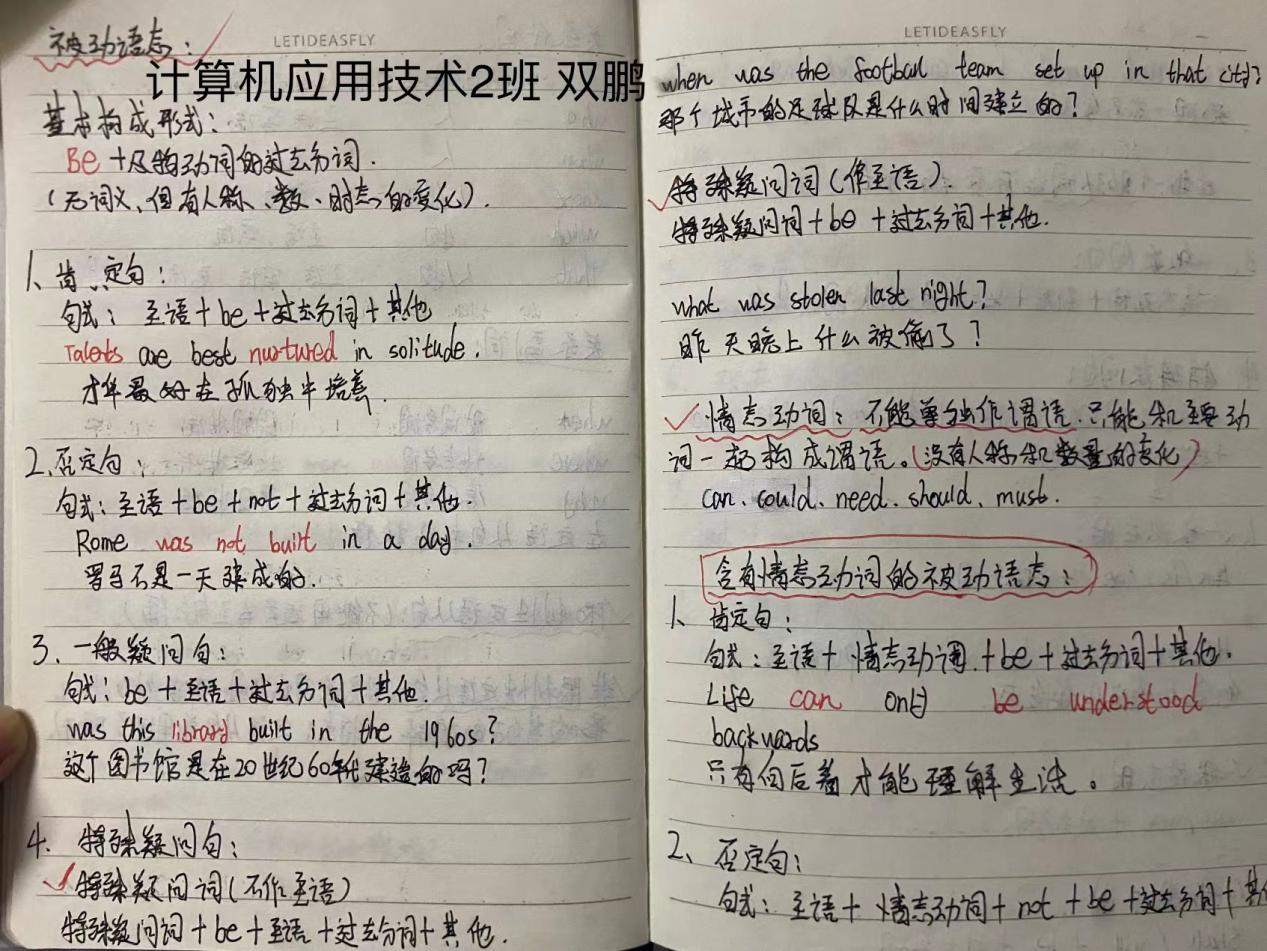 LETIDEASFLY
被动语态：
计算机应用技术2班 双鹏
基本构成形式：
Be +及物动词的过去分词.
(无词义、但有人称、数、时态的变化).
1、肯定句：
句式：主语+be+过去分词+其他
Talents are best nurtured in solitude.
才华最好在孤独中培养.
2、否定句：
句式：主语+be+not+过去分词+其他.
Rome was not built in a day.
罗马不是一天建成的.
3、一般疑问句：
句式：be+主语+过去分词+其他.
was this library built in the 1960s?
这个图书馆是在20世纪60年代建造的吗?
4、特殊疑问句：
特殊疑问词(不作主语)
特殊疑问词+be+主语+过去分词+其他.
LETIDEASFLY
when was the football team set up in that city?
那个城市的足球队是什么时间建立的?
特殊疑问词(作主语).
特殊疑问词+be+过去分词+其他.
what was stolen last night?
昨天晚上什么被偷了?
情态动词：不能单独作谓语.只能和主要动
词一起构成谓语。(没有人称和数量的变化)
can、could、need、should、must.
含有情态动词的被动语态：
1、肯定句：
句式：主语+情态动词+be+过去分词+其他.
Life can only be understood
backwards
只有向后看才能理解生活。
2、否定句：
句式：主语+情态动词+not+be+过去分词+其